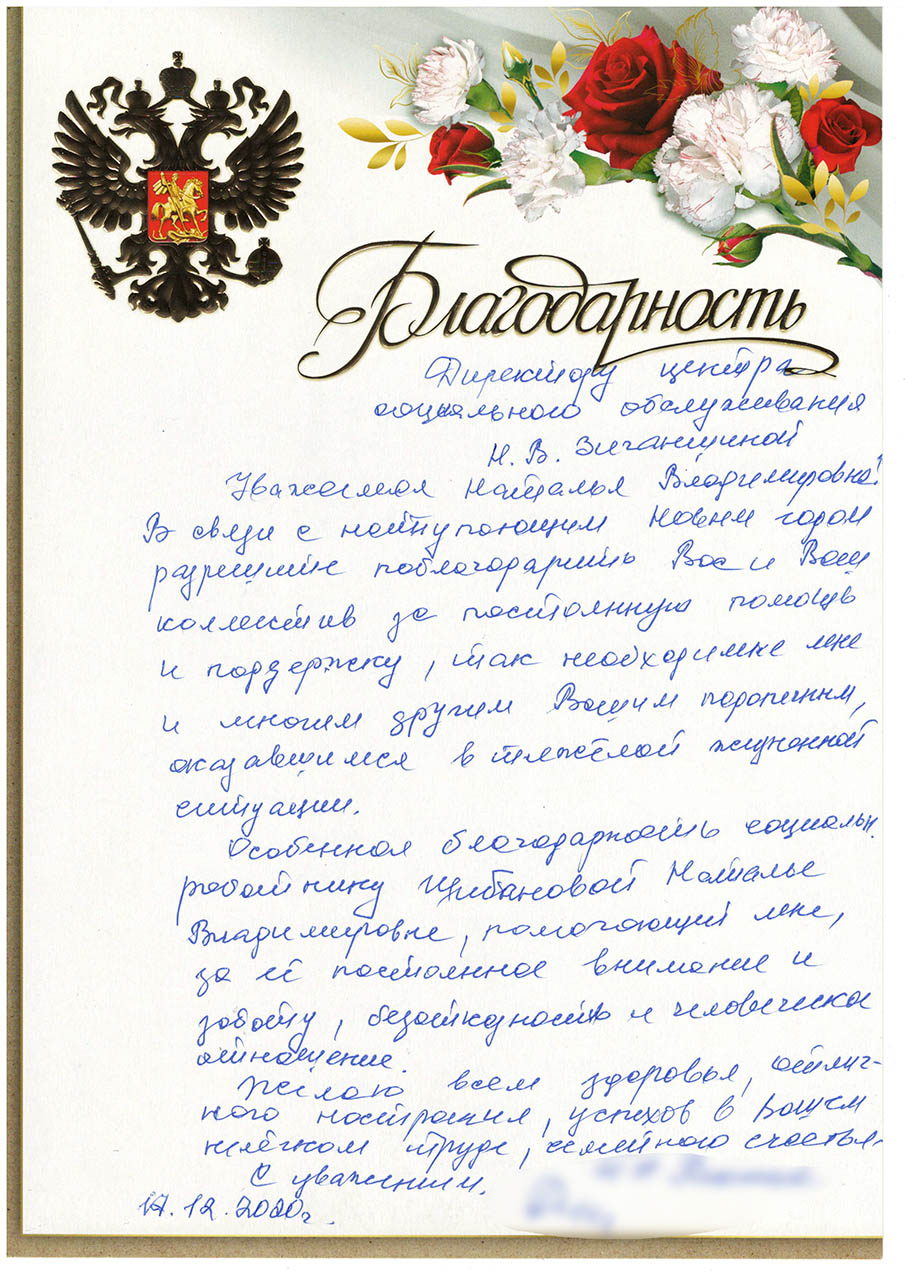 Благодарность
Директору центра
социального обслуживания
Н. В. Зиганшиной
Уважаемая Наталья Владимировна!
В связи с наступающим Новым годом
разрешите поблагодарить Вас и Ваш
коллектив за постоянную помощь
и поддержку, так необходимые мне
и многим другим Вашим подопечным,
оказавшимся в тяжёлой жизненной
ситуации.
Особенная благодарность социальн.
работнику Цибановой Наталье
Владимировне, помогающий мне,
за её постоянное внимание и
заботу, безотказность и человеческое
отношение.
Желаю всем здоровья, отлич-
ного настроения, успехов в Вашем
нелёгком труде, семейного счастья.
С уважением.
17.12.2020г.